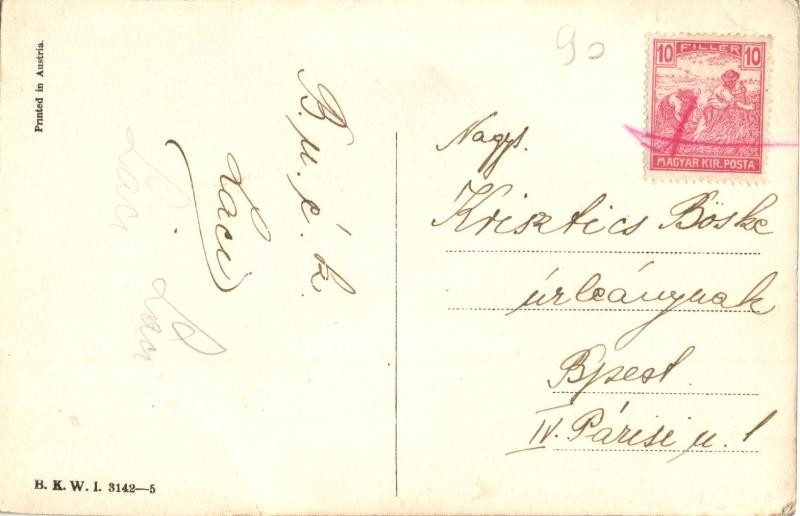 Printed in Austria.
B. u. é. k.
Laci
Laci
Laci
90
10 FILLER 10
MAGYAR KIR. POSTA
Nagys.
Krisztics Böske
úrleánynak
Bpest.
IV. Párisi u. 1
B. K. W. I. 3142—5